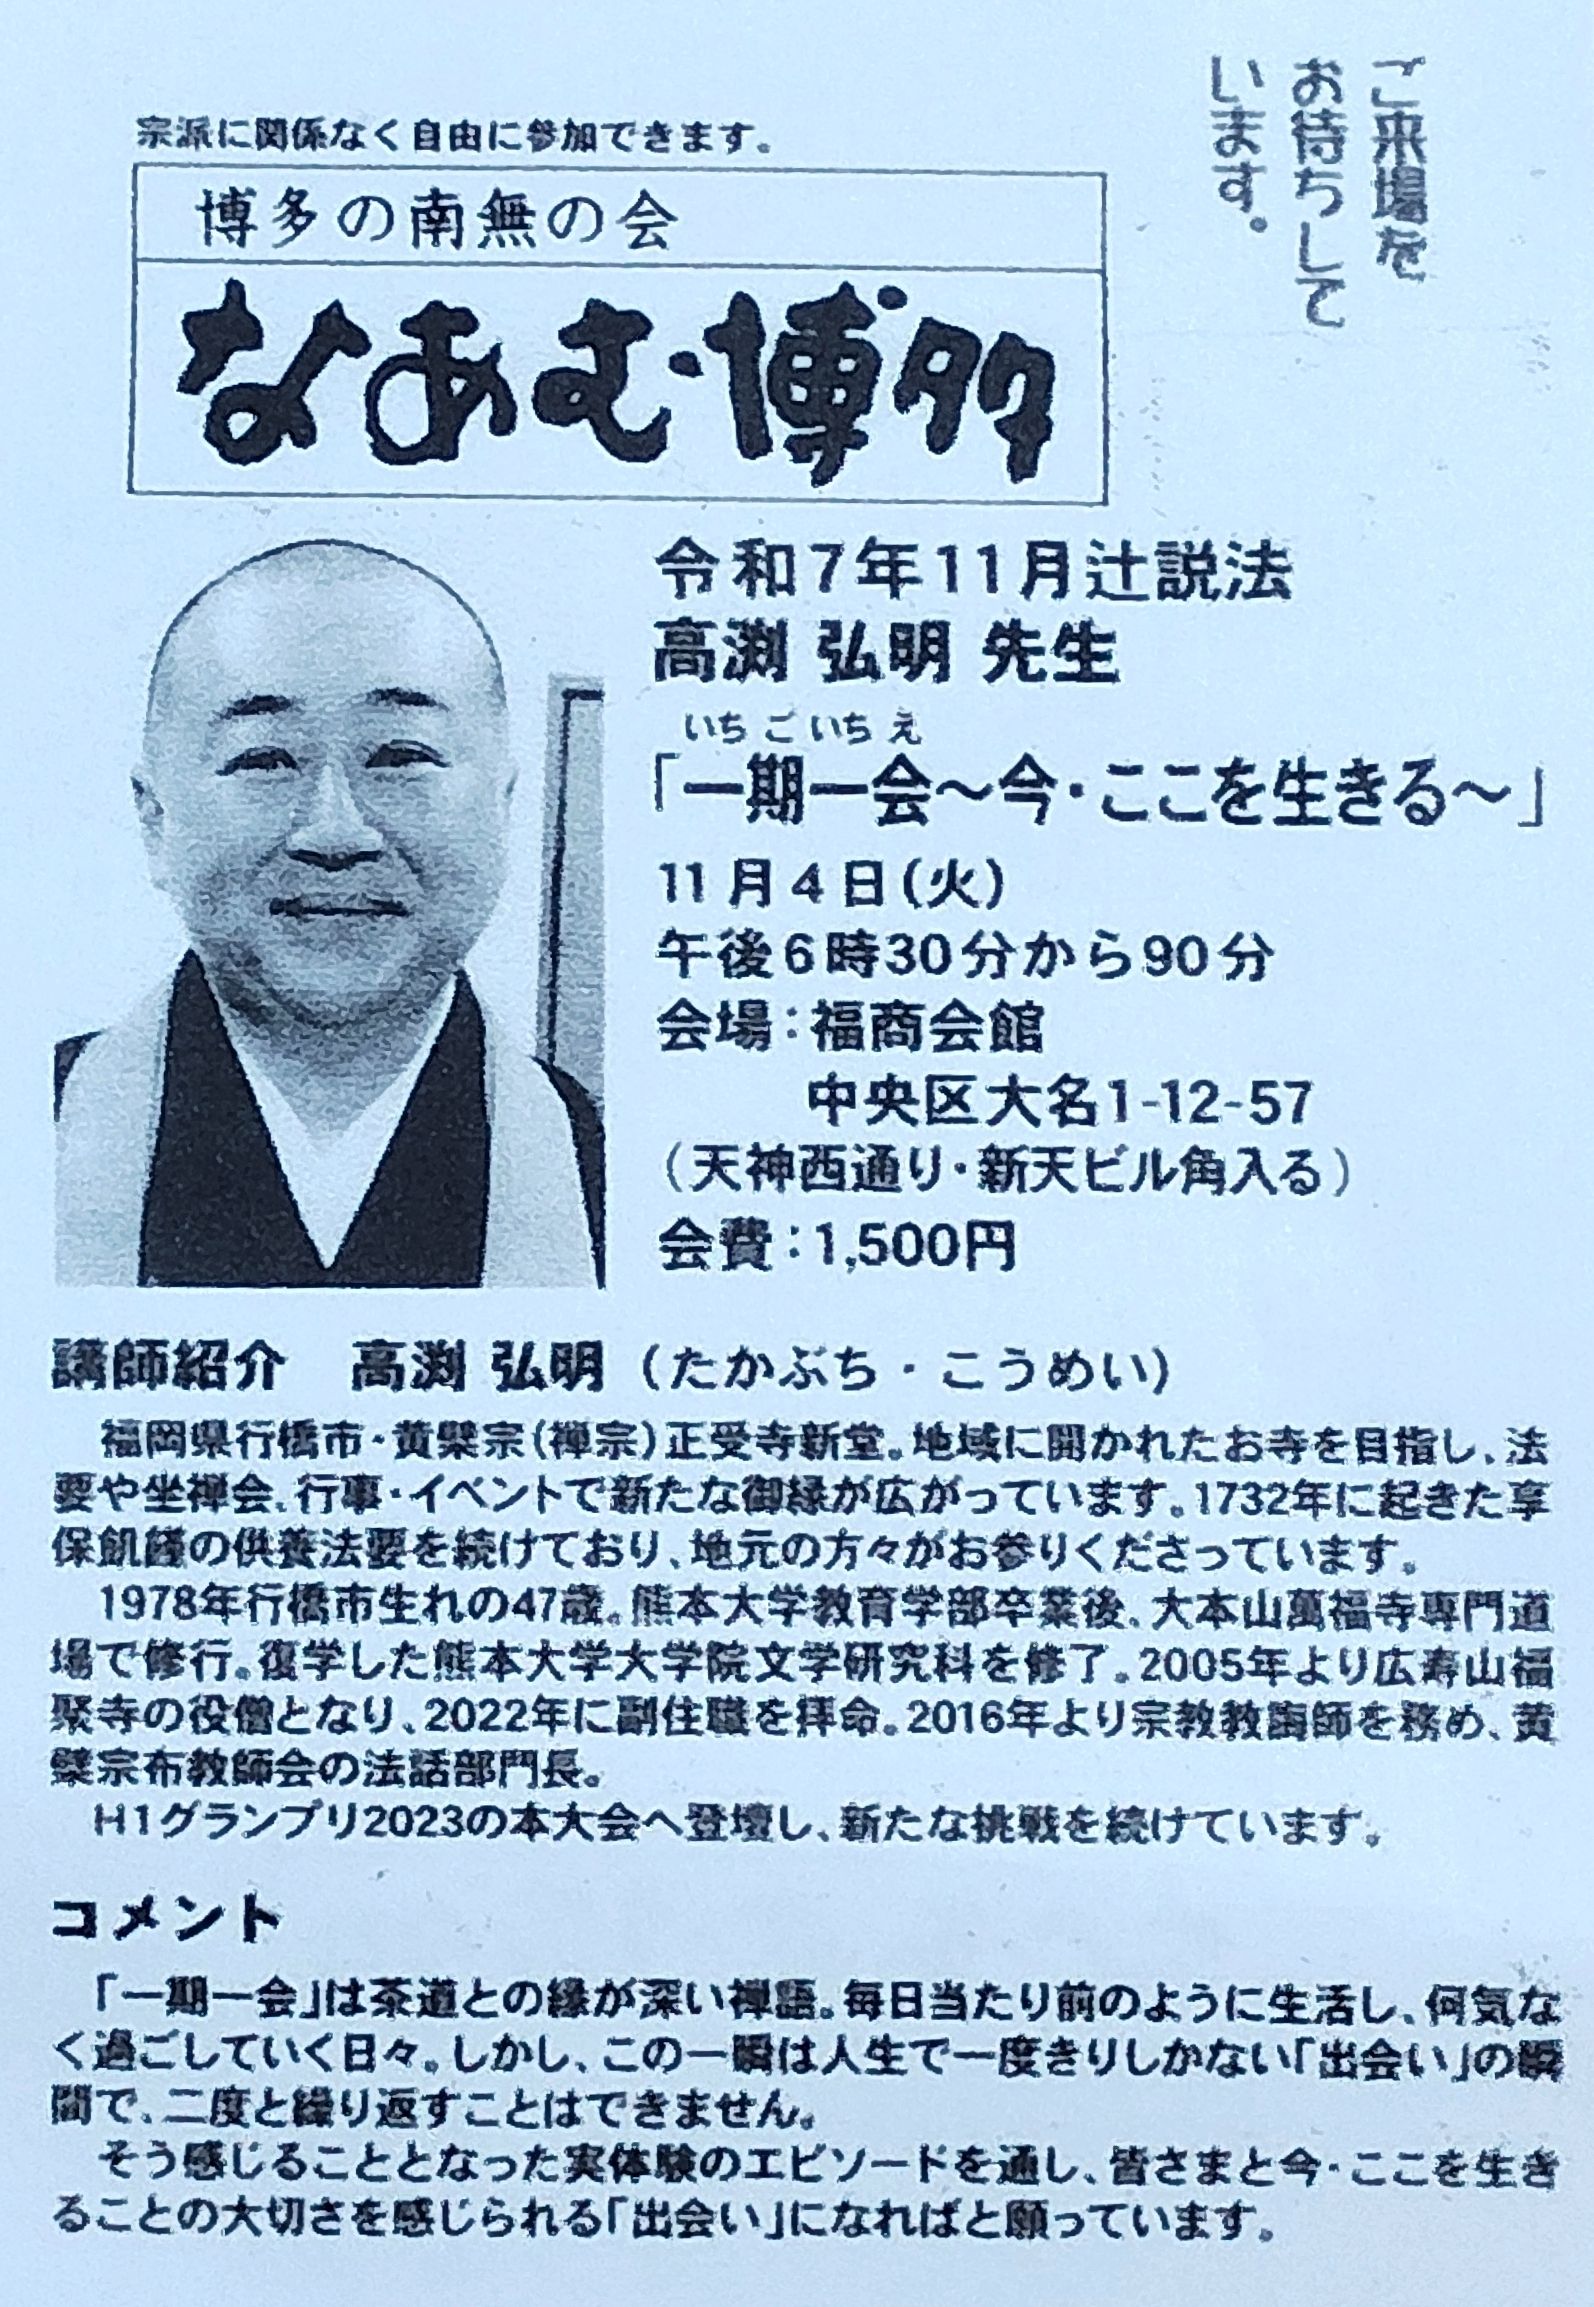 ご来場を
お待ちして
います。
宗派に関係なく自由に参加できます。
博多の南無の会
なあむ・博多
令和7年11月辻説法
高渕 弘明 先生
いちごいちえ
「一期一会～今・ここを生きる～」
11月4日(火)
午後6時30分から90分
会場：福商会館
中央区大名1-12-57
（天神西通り・新天ビル角入る）
会費：1,500円
講師紹介　高渕 弘明（たかぶち・こうめい）
福岡県行橋市・黄檗宗(禅宗)正受寺新堂。地域に開かれたお寺を目指し、法
要や坐禅会、行事・イベントで新たな御縁が広がっています。1732年に起きた享
保飢饉の供養法要を続けており、地元の方々がお参りくださっています。
1978年行橋市生れの47歳。熊本大学教育学部卒業後、大本山萬福寺専門道
場で修行。復学した熊本大学大学院文学研究科を修了。2005年より広寿山福
聚寺の役僧となり、2022年に副住職を拝命。2016年より宗教教誨師を務め、黄
檗宗布教師会の法話部門長。
H1グランプリ2023の本大会へ登壇し、新たな挑戦を続けています。
コメント
「一期一会」は茶道との縁が深い禅語。毎日当たり前のように生活し、何気な
く過ごしていく日々。しかし、この一瞬は人生で一度きりしかない「出会い」の瞬
間で、二度と繰り返すことはできません。
そう感じることとなった実体験のエピソードを通し、皆さまと今・ここを生き
ることの大切さを感じられる「出会い」になればと願っています。